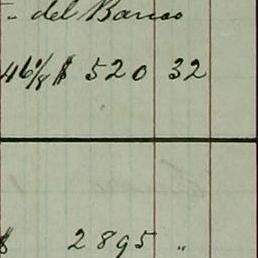 del Banco
46 1/8 $ 520 32
$ 2895 "